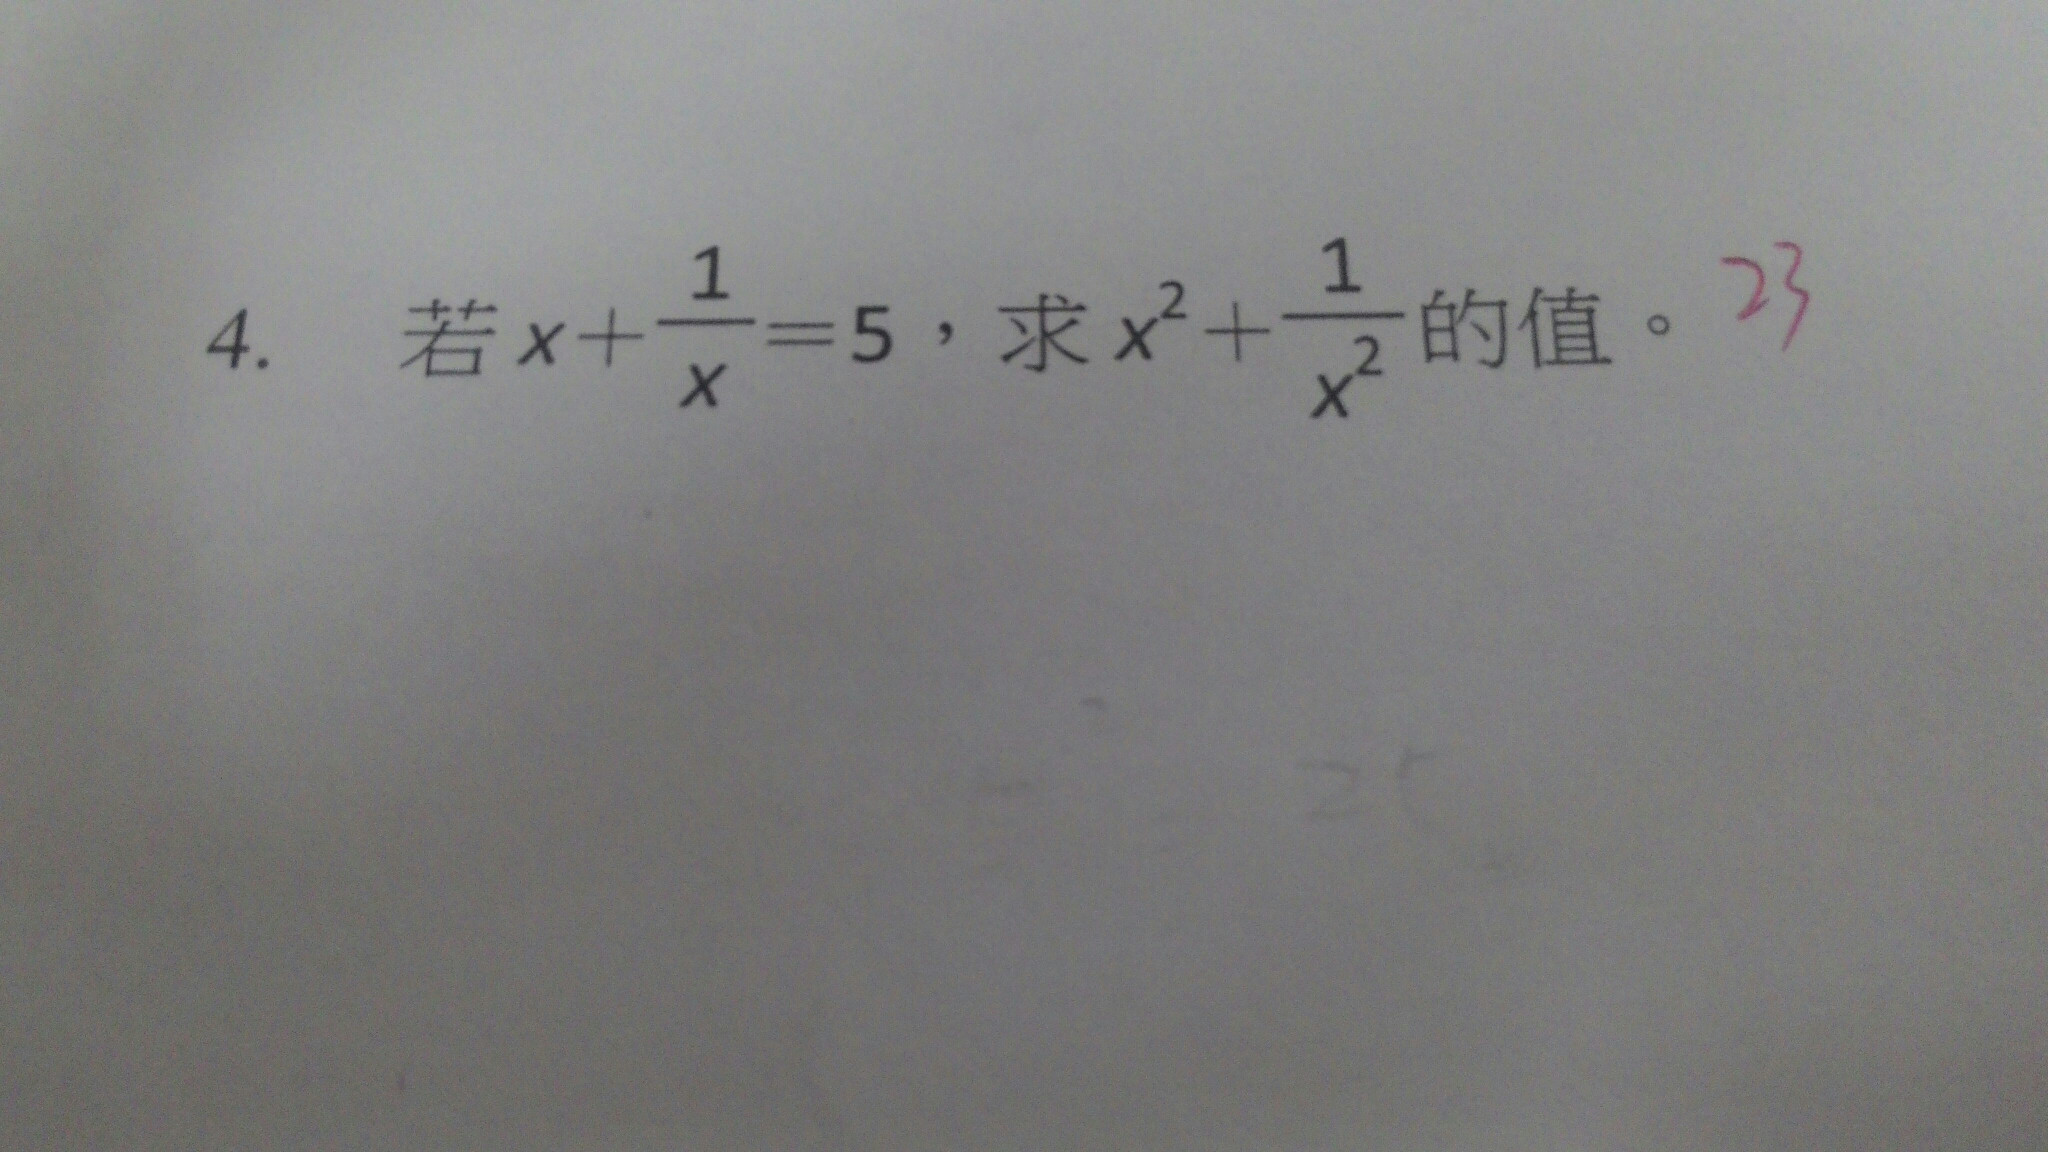 4. 若 x+1/x=5，求 x²+1/x² 的值。 23
25